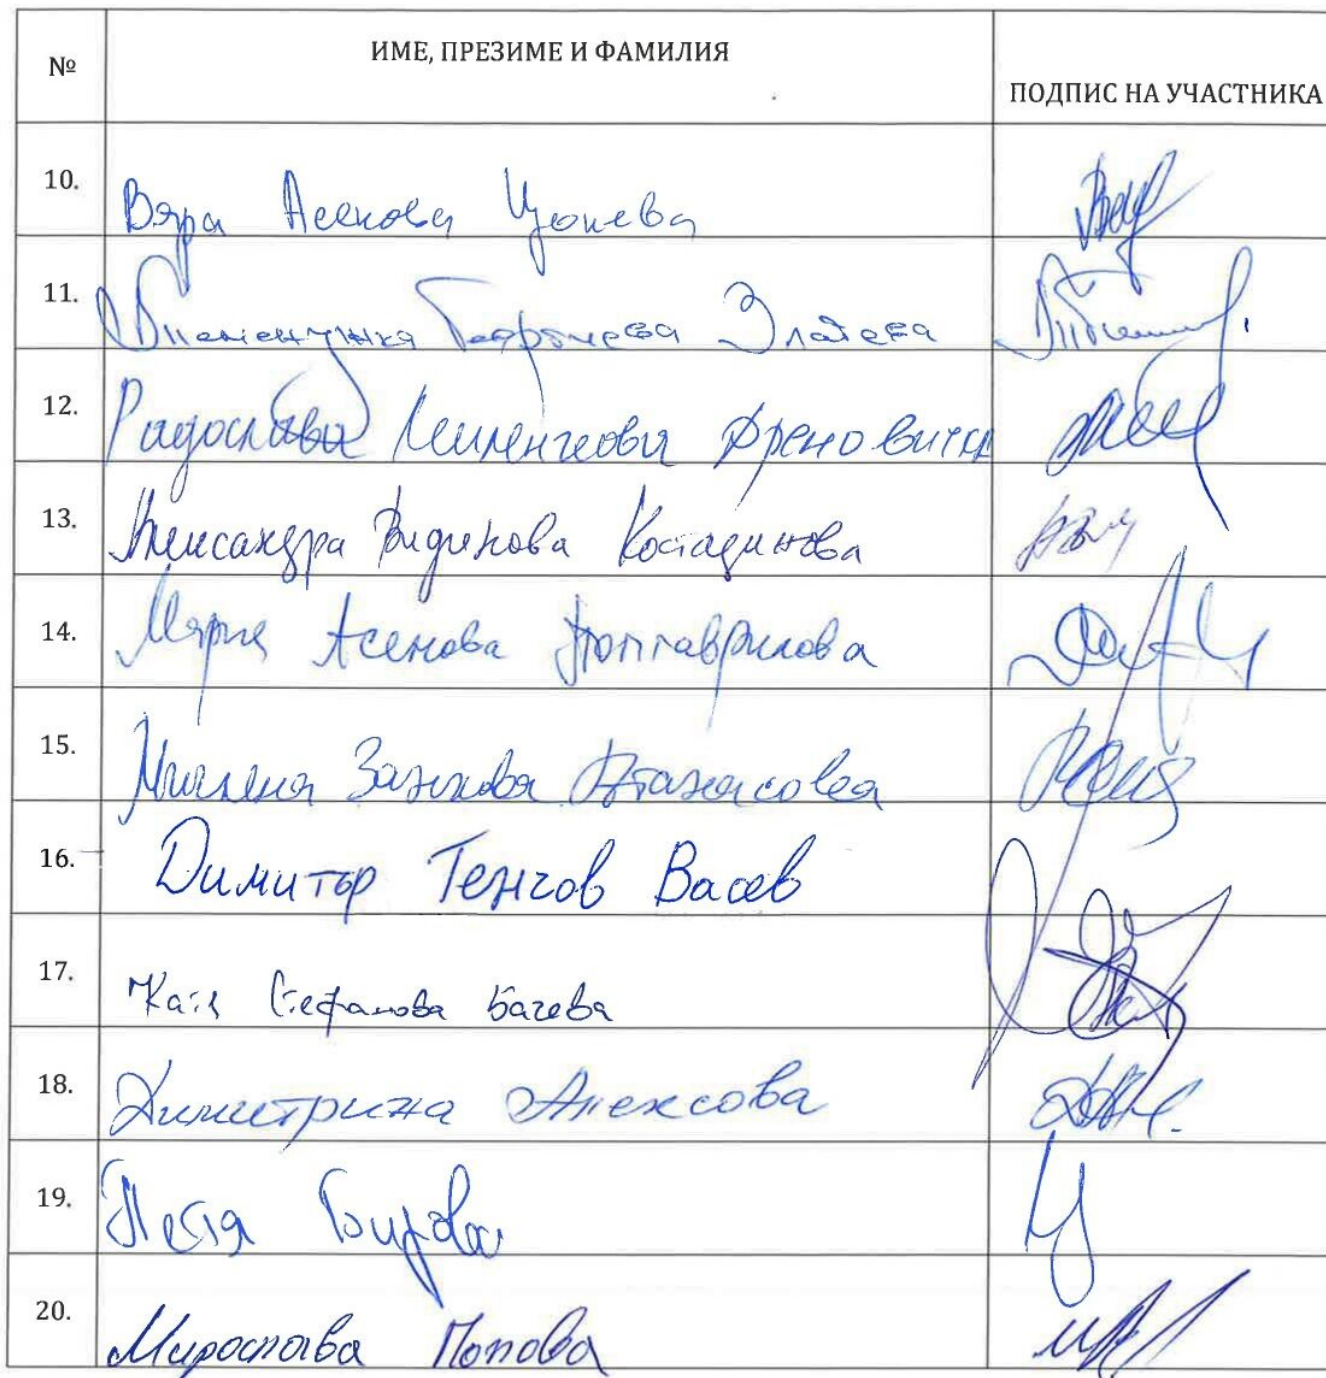 № ИМЕ, ПРЕЗИМЕ И ФАМИЛИЯ ПОДПИС НА УЧАСТНИКА
10. Вяра Асенова Цонева
11. Златева
12. Радослава
13. Александра Видинова Костадинова
14. Мария Асенова Попгаврилова
15. Милена Занкова Атанасова
16. Димитър Генчов Васев
17. Катя Стефанова Бачева
18. Димитрина Алексова
19. Петя
20. Мирослава Попова